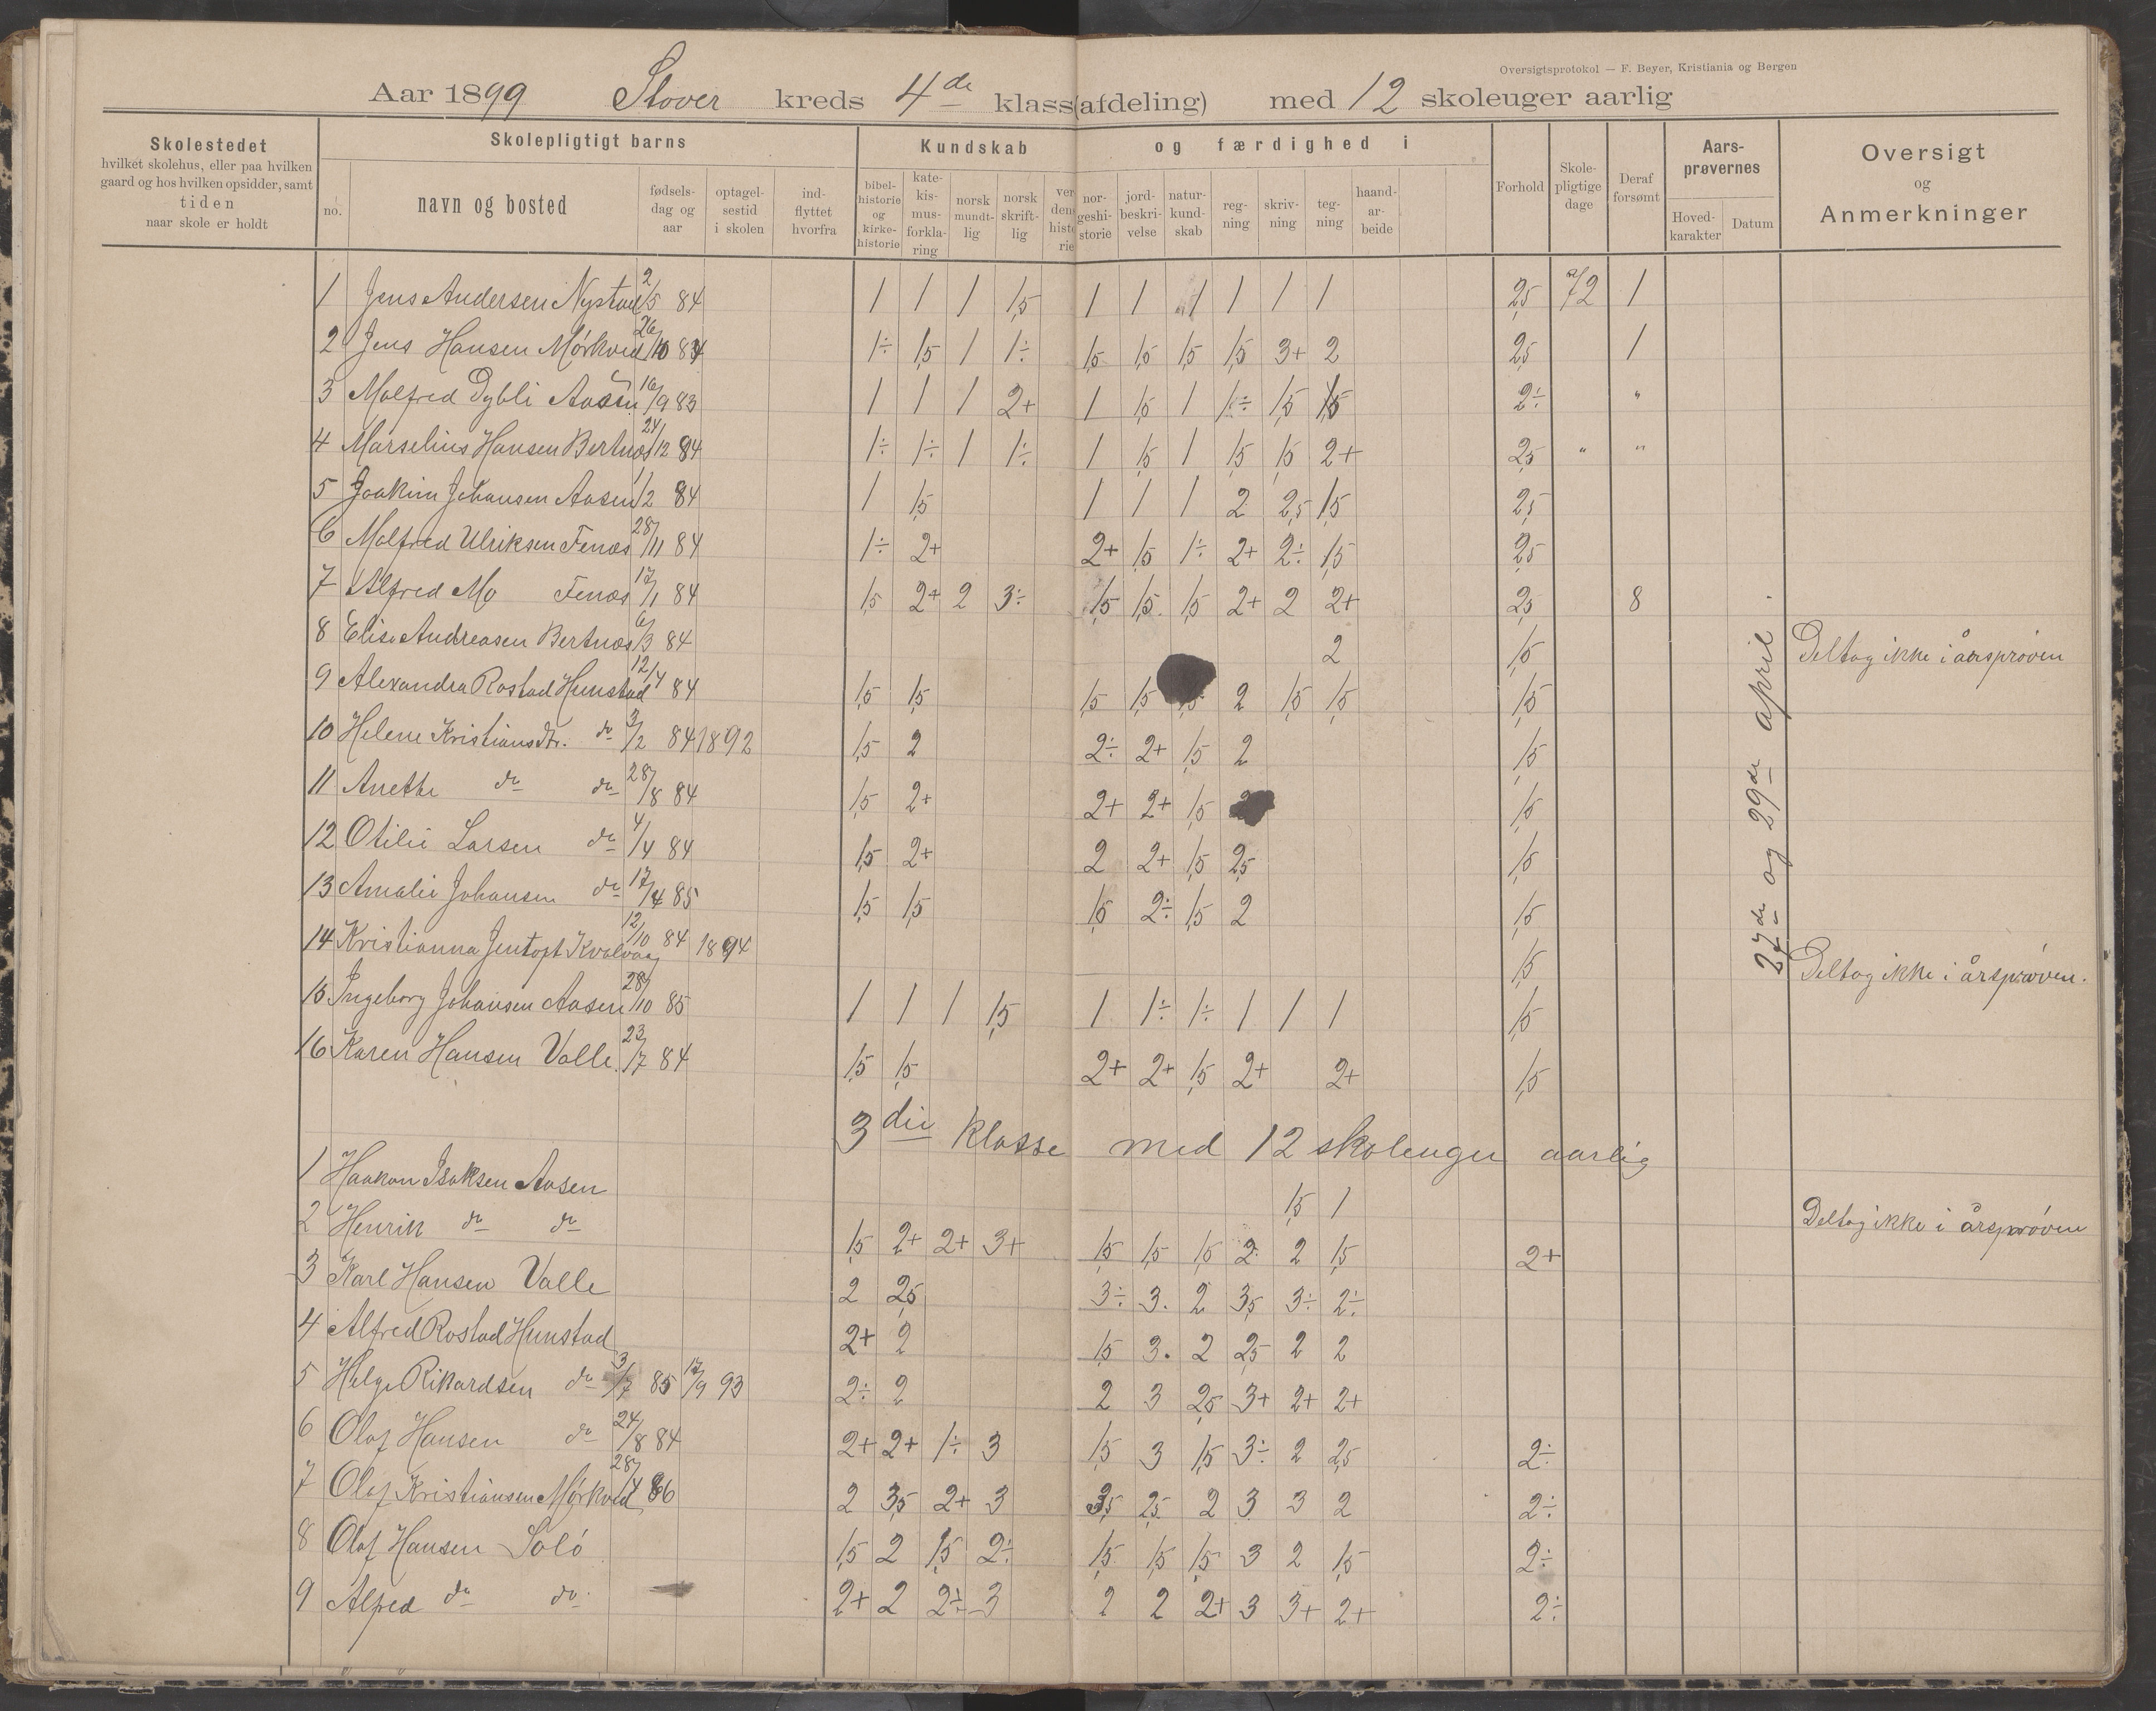 Oversigtsprotokol — F. Beyer, Kristiania og Bergen
Aar 1899 Støver kreds 4de klass(afdeling) med 12 skoleuger aarlig
Skolestedet
hvilket skolehus, eller paa hvilken
gaard og hos hvilken opsidder, samt
tiden
naar skole er holdt
Skolepligtigt barns
no.
navn og bosted
fødsels-
dag og
aar
optagel-
sestid
i skolen
ind-
flyttet
hvorfra
Kundskab og færdighed i
bibel-
historie
og
kirke-
historie
kate-
kis-
mus-
forkla-
ring
norsk
mundt-
lig
norsk
skrift-
lig
ver
den
histo
rie
nor-
geshi-
storie
jord-
beskri-
velse
natur-
kund-
skab
reg-
ning
skriv-
ning
teg-
ning
haand-
ar-
beide
Forhold
Skole-
pligtige
dage
Deraf
forsømt
Aars-
prøvernes
Hoved-
karakter
Datum
Oversigt
og
Anmerkninger
1 Jens Andersen Nystad 2/5 84 1 1 1 1,5 1 1 1 1 1 1 2,5 72 1
2 Jens Hansen Mørkved 26/10 83 1÷ 1,5 1 1÷ 1,5 1,5 1,5 1,5 3+ 2 2,5 1
3 Malfred Dybli Aasen 16/9 83 1 1 1 2+ 1 1,5 1 1÷ 1,5 1,5 2÷ "
4 Marselius Hansen Bertnæs 24/12 84 1÷ 1÷ 1 1÷ 1 1,5 1 1,5 1,5 2+ 2,5 " "
5 Joakim Johansen Aasen 1/2 84 1 1,5 1 1 1 2 2,5 1,5 2,5
6 Malfred Ulriksen Fenæs 28/11 84 1÷ 2+ 2+ 1,5 1÷ 2+ 2÷ 1,5 2,5
7 Alfred Mo Fenæs 17/1 84 1,5 2+ 2 3÷ 1,5 1,5 1,5 2+ 2 2+ 2,5 8
8 Elise Andreasen Bertnæs 6/3 84 2 1,5 Deltog ikke i årsprøven
9 Alexandra Rostad Hunstad 12/4 84 1,5 1,5 1,5 1,5 2 1,5 1,5 1,5
10 Helene Kristiansdtr. do 3/2 84 1892 1,5 2 2÷ 2+ 1,5 2 1,5
11 Anethe do do 28/8 84 1,5 2+ 2+ 2+ 1,5 1,5
12 Otilie Larsen do 4/4 84 1,5 2+ 2 2+ 1,5 2,5 1,5
13 Amalie Johansen do 17/4 85 1,5 1,5 1,5 2÷ 1,5 2 1,5
14 Kristianna Jentoft Kvalvaag 12/10 84 1894 1,5 Deltog ikke i årsprøven.
15 Ingeborg Johansen Aasen 28/10 85 1 1 1 1,5 1 1÷ 1÷ 1 1 1 1,5
16 Karen Hansen Valle 23/7 84 1,5 1,5 2+ 2+ 1,5 2+ 2+ 1,5
27de og 29de april.
3die klasse med 12 skoleuger aarlig
1 Haakon Isaksen Aasen 1,5 1 Deltog ikke i årsprøven
2 Henrik do do 1,5 2+ 2+ 3+ 1,5 1,5 1,5 2 2 1,5 2+
3 Karl Hansen Valle 2 2,5 3÷ 3. 2 3,5 3÷ 2÷
4 Alfred Rostad Hunstad 2+ 2 1,5 3. 2 2,5 2 2
5 Helge Rikardsen do 3/7 85 17/9 93 2÷ 2 2 3 2,5 3+ 2+ 2+
6 Olaf Hansen do 24/8 84 2+ 2+ 1÷ 3 1,5 3 1,5 3÷ 2 2,5 2÷
7 Olaf Kristiansen Mørkved 28/4 86 2 3,5 2+ 3 3,5 2,5 2 3 3 2 2÷
8 Olaf Hansen Solø 1,5 2 1,5 2÷ 1,5 1,5 1,5 3 2 1,5 2÷
9 Alfred do do 2+ 2 2÷ 3 2 2 2+ 3 3+ 2+ 2÷